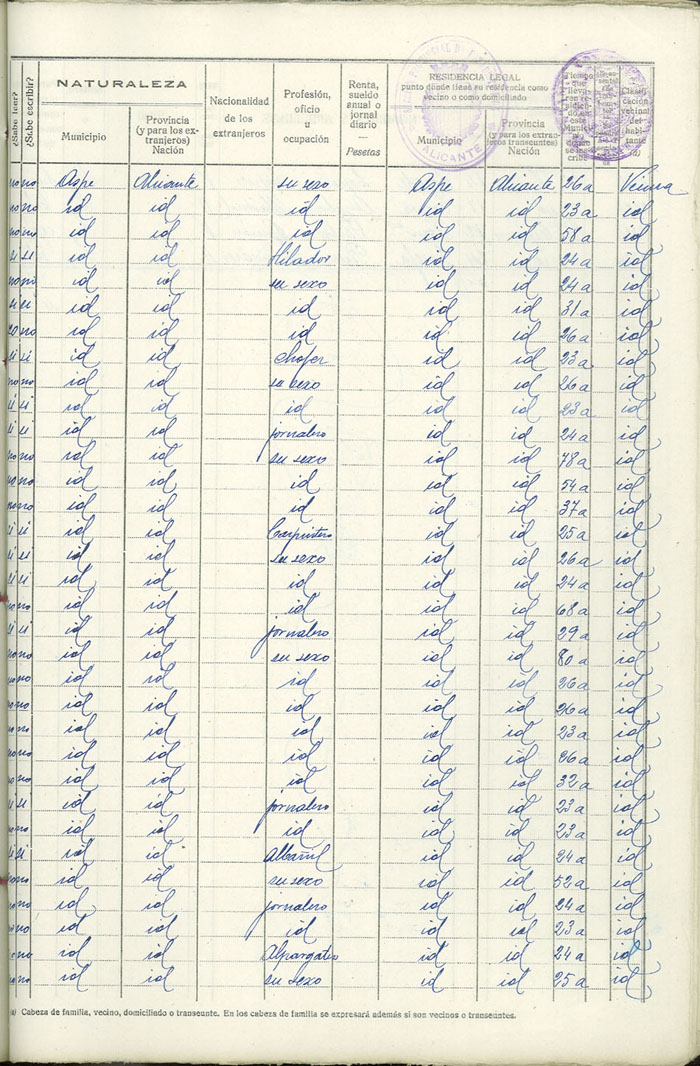 ¿Sabe leer?
¿Sabe escribir?
NATURALEZA
Municipio
Provincia (y para los extranjeros) Nación
Nacionalidad de los extranjeros
Profesión, oficio u ocupación
Renta, sueldo anual o jornal diario
Pesetas
RESIDENCIA LEGAL
punto donde tiene su residencia como vecino o como domiciliado
Municipio
Provincia (y para los extranjeros transeuntes) Nación
ALICANTE
no no Aspe Alicante su sexo Aspe Alicante 26 a Vecina
no no id id id id id 23 a id
no no id id id id id 58 a id
si si id id Hilador id id 24 a id
no no id id su sexo id id 24 a id
si si id id id id id 31 a id
no no id id id id id 26 a id
si si id id chofer id id 23 a id
no no id id su sexo id id 26 a id
si si id id id id id 23 a id
si si id id jornalero id id 24 a id
no no id id su sexo id id 78 a id
no no id id id id id 54 a id
no no id id id id id 37 a id
si si id id Carpintero id id 25 a id
si si id id su sexo id id 26 a id
si si id id id id id 24 a id
no no id id id id id 68 a id
si si id id jornalero id id 29 a id
no no id id su sexo id id 80 a id
no no id id id id id 26 a id
no no id id id id id 26 a id
no no id id id id id 23 a id
no no id id id id id a id
no no id id id id id 32 a id
si si id id jornalero id id 23 a id
no no id id id id id 23 a id
si si id id Albañil id id 24 a id
no no id id su sexo id id 52 a id
no no id id jornalero id id 24 a id
no no id id id id id 23 a id
no no id id Alpargatero id id 24 a id
no no id id su sexo id id 25 a id
(a) Cabeza de familia, vecino, domiciliado o transeunte. En los cabeza de familia se expresará además si son vecinos o transeuntes.